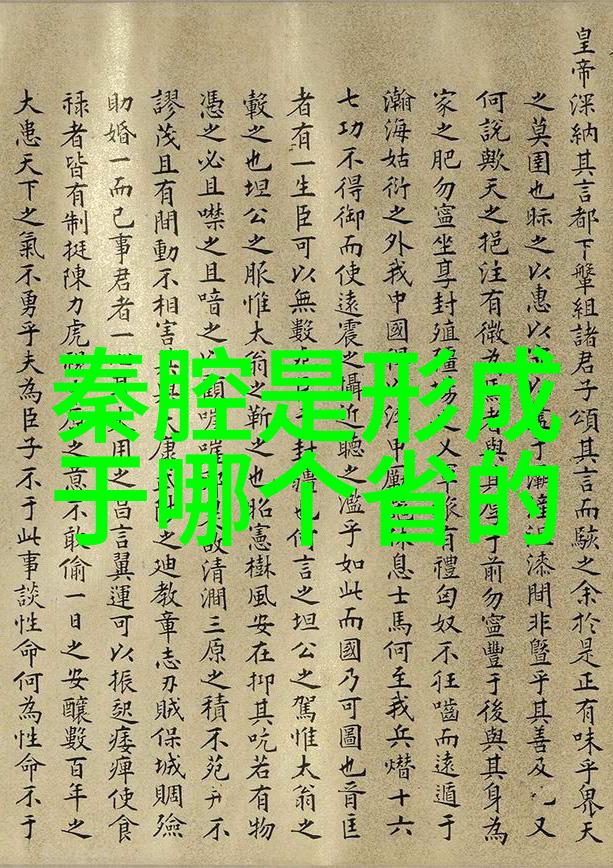 皇帝深納其言都下犖組諸君子頌其言而駭之余於是正有味乎畀天
之莫圉也眎之以惠以
漆閒非暨乎其善及
又
何說歟天之挹注有微為
前勿寍豐于後與其身為
家之肥勿寍坐享封殖
有禮匈奴不狂嚙而遠遁于
瀚海姑衍之外我中國得以
休息士馬何至我兵熸十六
七功不得御而使遠震之攝近聽之濫乎如此而國乃可圖也音匡
者有一生臣可以無數
封禮也何言之坦公之駕惟太翁之
轂之也坦公之脤惟太翁之靳之也昭憲樹風安在抑其吭若有物
憑之必且噤之且喑之
故清澗三原之積不苑
不
謬茂且有間動不相害
康
之迪教章志刃賊保城賙殮
助婚一而已事君者一
用之昌言翼運可以振起痿痺使食
祿者皆有制挺陳力虎
之意不敢偷一日之安釀數百年之
大患天下之氣不勇乎夫為臣子不于此事談性命何為性命不于
秦腔是形成
于哪个省的